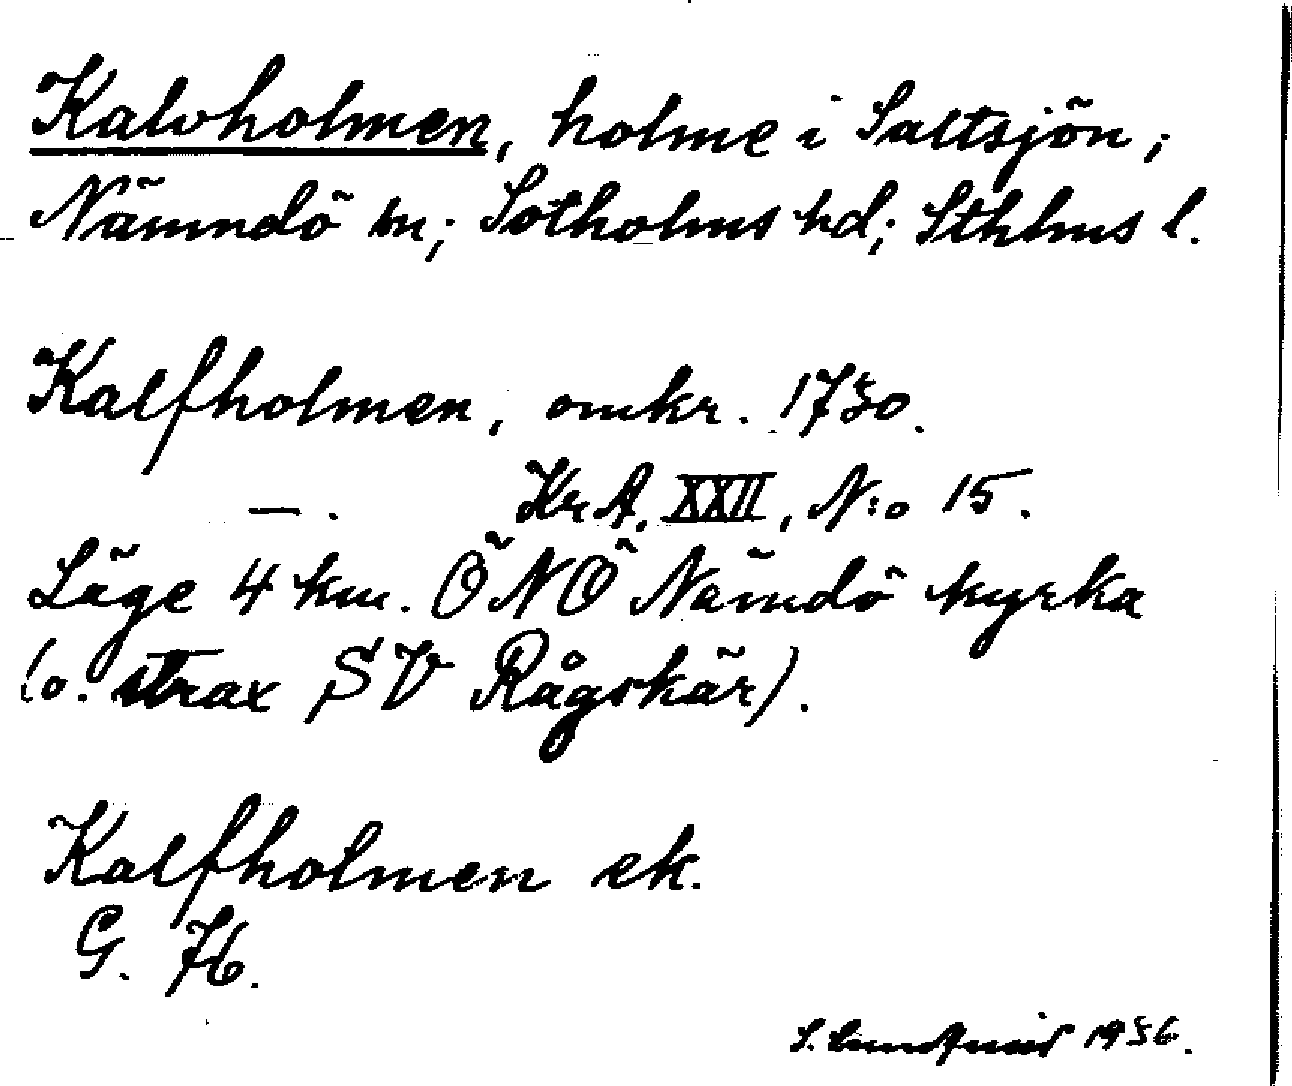 Kalvholmen, holme i Saltsjön;
Nämndö sn; Sotholms hd; Sthlms l.
Kalfholmen, omkr. 1730.
—. Kr A. XXII, N:o 15.
Läge 4 km. ÖNÖ Nämdö kyrka
(o. strax SV Rågskär).
Kalfholmen ek.
G. 76.
S. Lundqvist 1936.